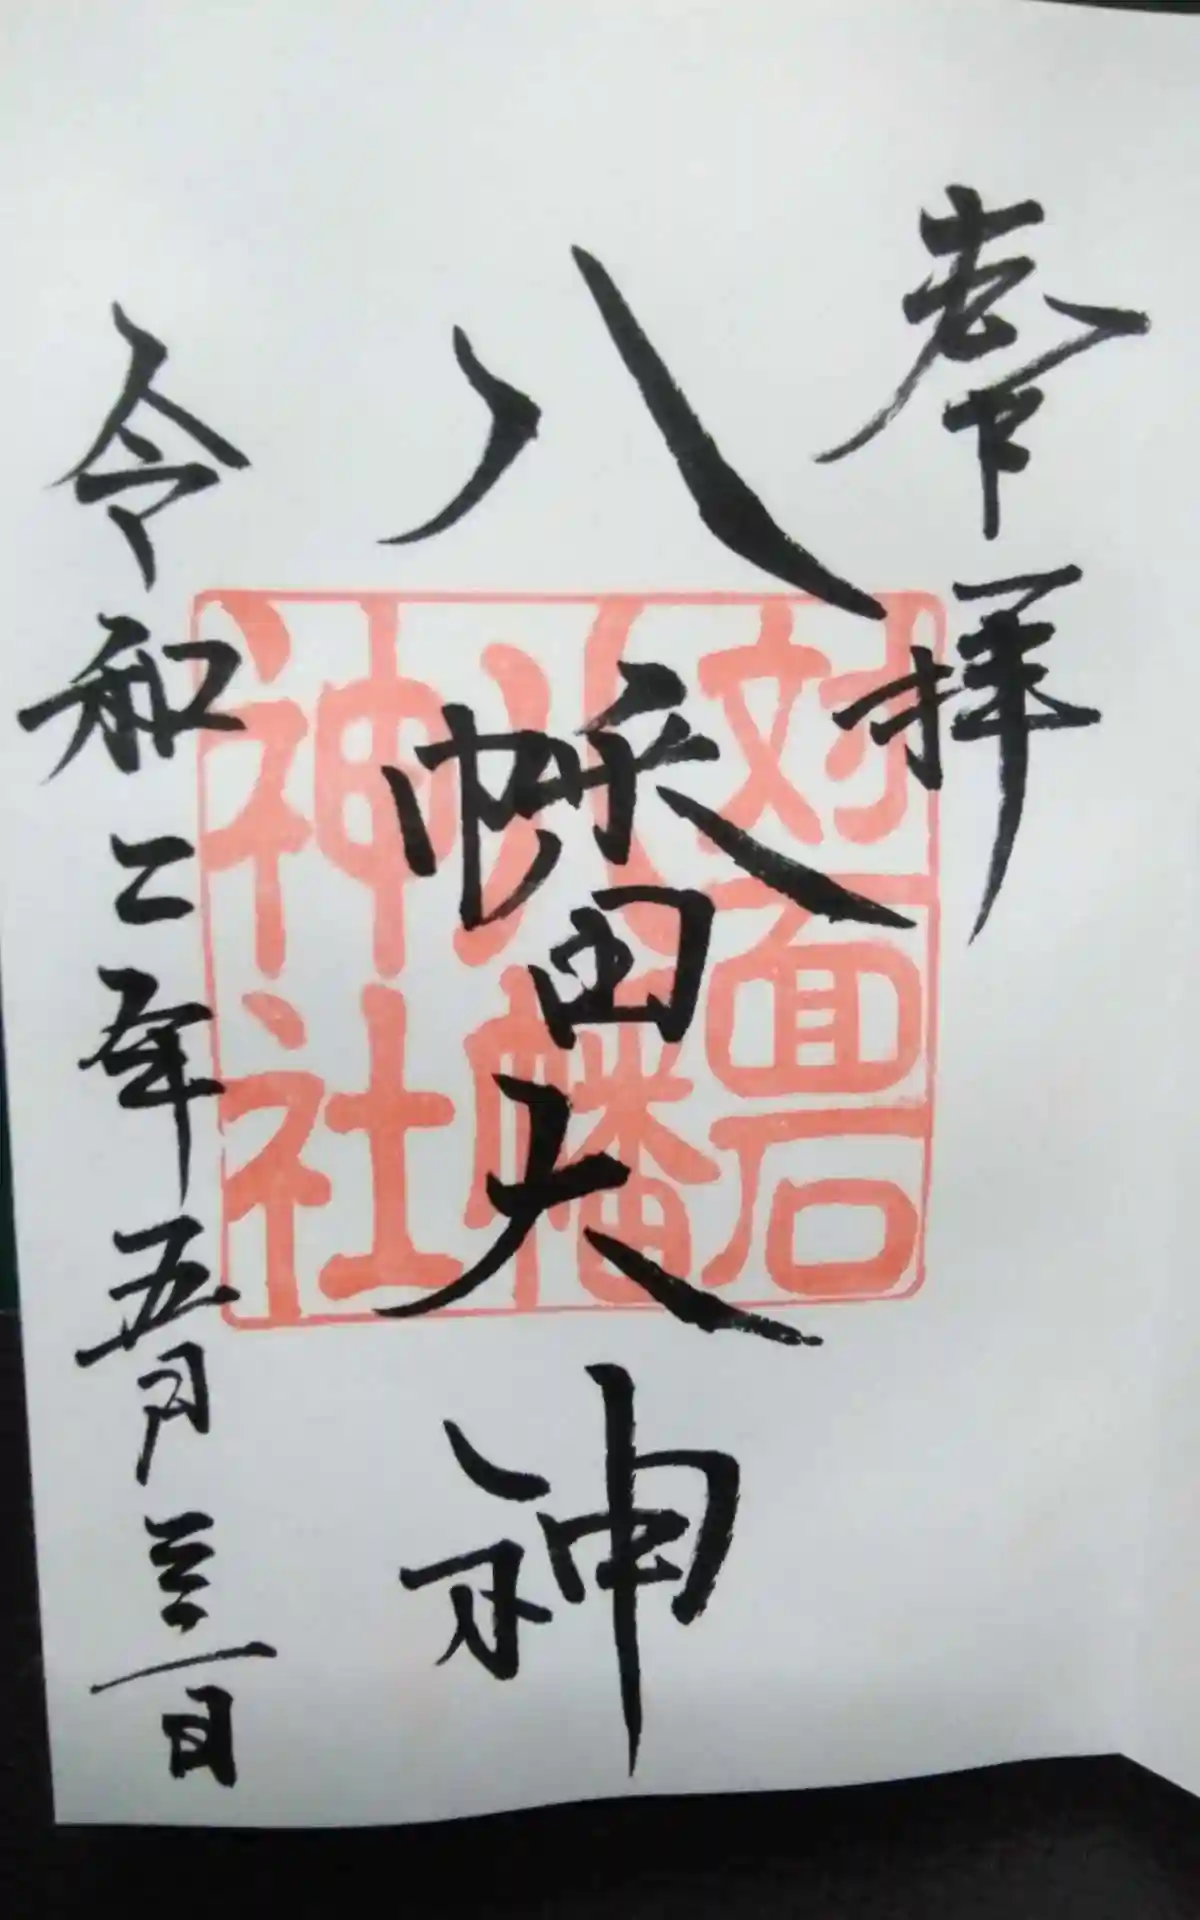 奉拝
八幡大神
令和二年五月三一日
対面石
八幡
神社